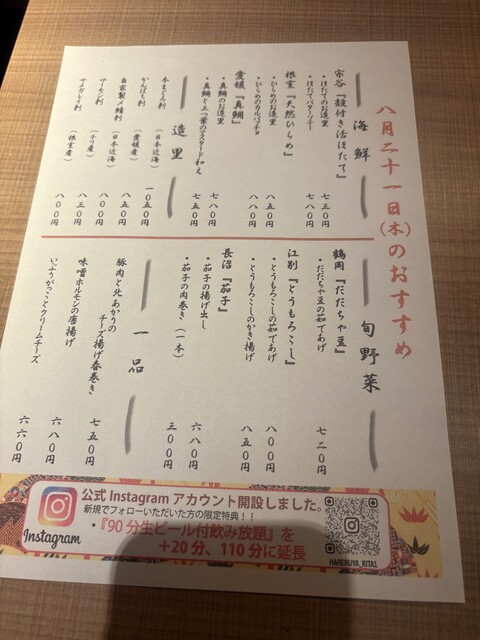 八月二十一日(木)のおすすめ
海鮮
市谷『殻付き活ほたて』
・ほたてのお造里 七三〇円
・ほたてバターソテー 七八〇円
根室『天然ひらめ』
・ひらめのお造里 八五〇円
・ひらめのカルパッチョ 八八〇円
愛媛『真鯛』
・真鯛のお造里 七八〇円
・真鯛と三つ葉のマスタード和え 七五〇円
造里
本まぐろ刺 (日本近海) 一〇五〇円
かんぱち刺 (愛媛産) 八五〇円
自家製〆鯖刺 (日本近海) 八〇〇円
サーモン刺 (チリ産) 八三〇円
サメガレイ刺 (根室産) 八〇〇円
旬野菜
鶴岡『だだちゃ豆』
・だだちゃ豆の茹であげ 七二〇円
江別『とうもろこし』
・とうもろこしの茹であげ 八〇〇円
・とうもろこしのかき揚げ 八五〇円
長沼『茄子』
・茄子の揚げ出し 六八〇円
・茄子の肉巻き(一本) 三〇〇円
一品
豚肉と北あかりの
チーズ揚げ春巻き 七五〇円
味噌ホルモンの唐揚げ 六八〇円
いぶりがっことクリームチーズ 六六〇円
公式 Instagram アカウント開設しました。
新規でフォローいただいた方の限定特典!!
・『90 分生ビール付飲み放題』を
+20 分、110 分に延長
Instagram
HARERUYA_KITA1